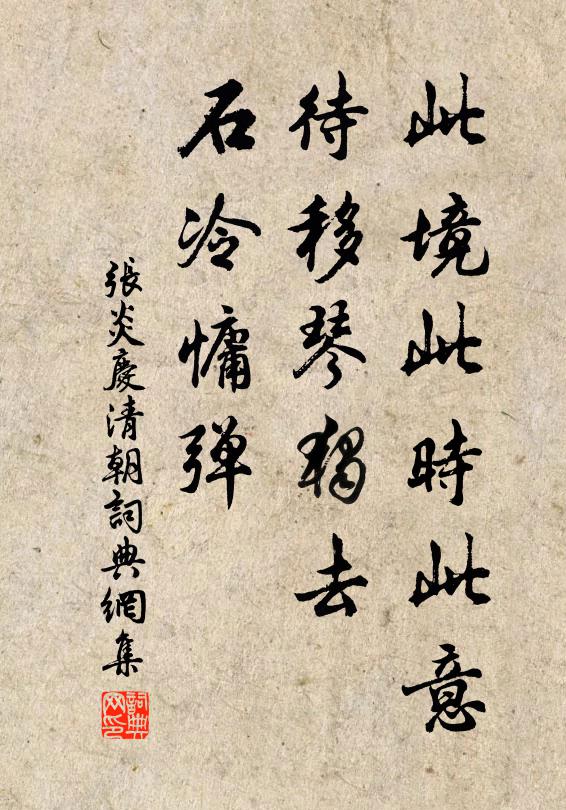 此境此時此意
待移琴獨去
石冷慵彈
張炎慶清朝詞典網集
詞典网印